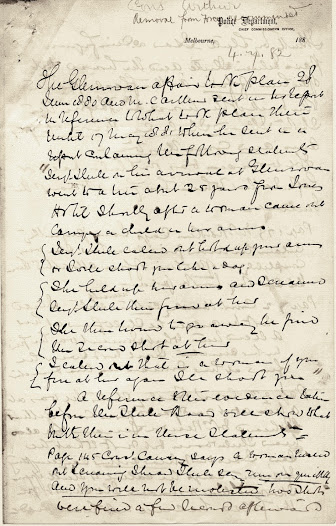 Cons Arthur
Removal from
Police Department,
CHIEF COMMISSIONER'S OFFICE,
Melbourne, 188
4. 82
The Glenrowan affair took place 28
June 1880 and he sent in his report
in reference to what took place there
until of May 1881 when he sent in a
report containing the following statements
Sergt Steele on his arrival at Glenrowan
went to a tree about 25 yards from Jones
Hotel shortly after a woman came out
carrying a child in her arms
Sergt Steele called out hold up your arms
or I will shoot you like a dog
She held up her arms and screamed
Sergt Steele then fired at her
She then turned to go away he fired
the second shot at her
I called out that is a woman if you
fire at her again I'll shoot you"
A reference to the evidence taken
before the Steele Board will show what
truth there is in these statements
Page 145 Const Causey says a woman
out screaming I heard Steele say run on quickly
and you will not be molested, two shots
were fired a few seconds afterward